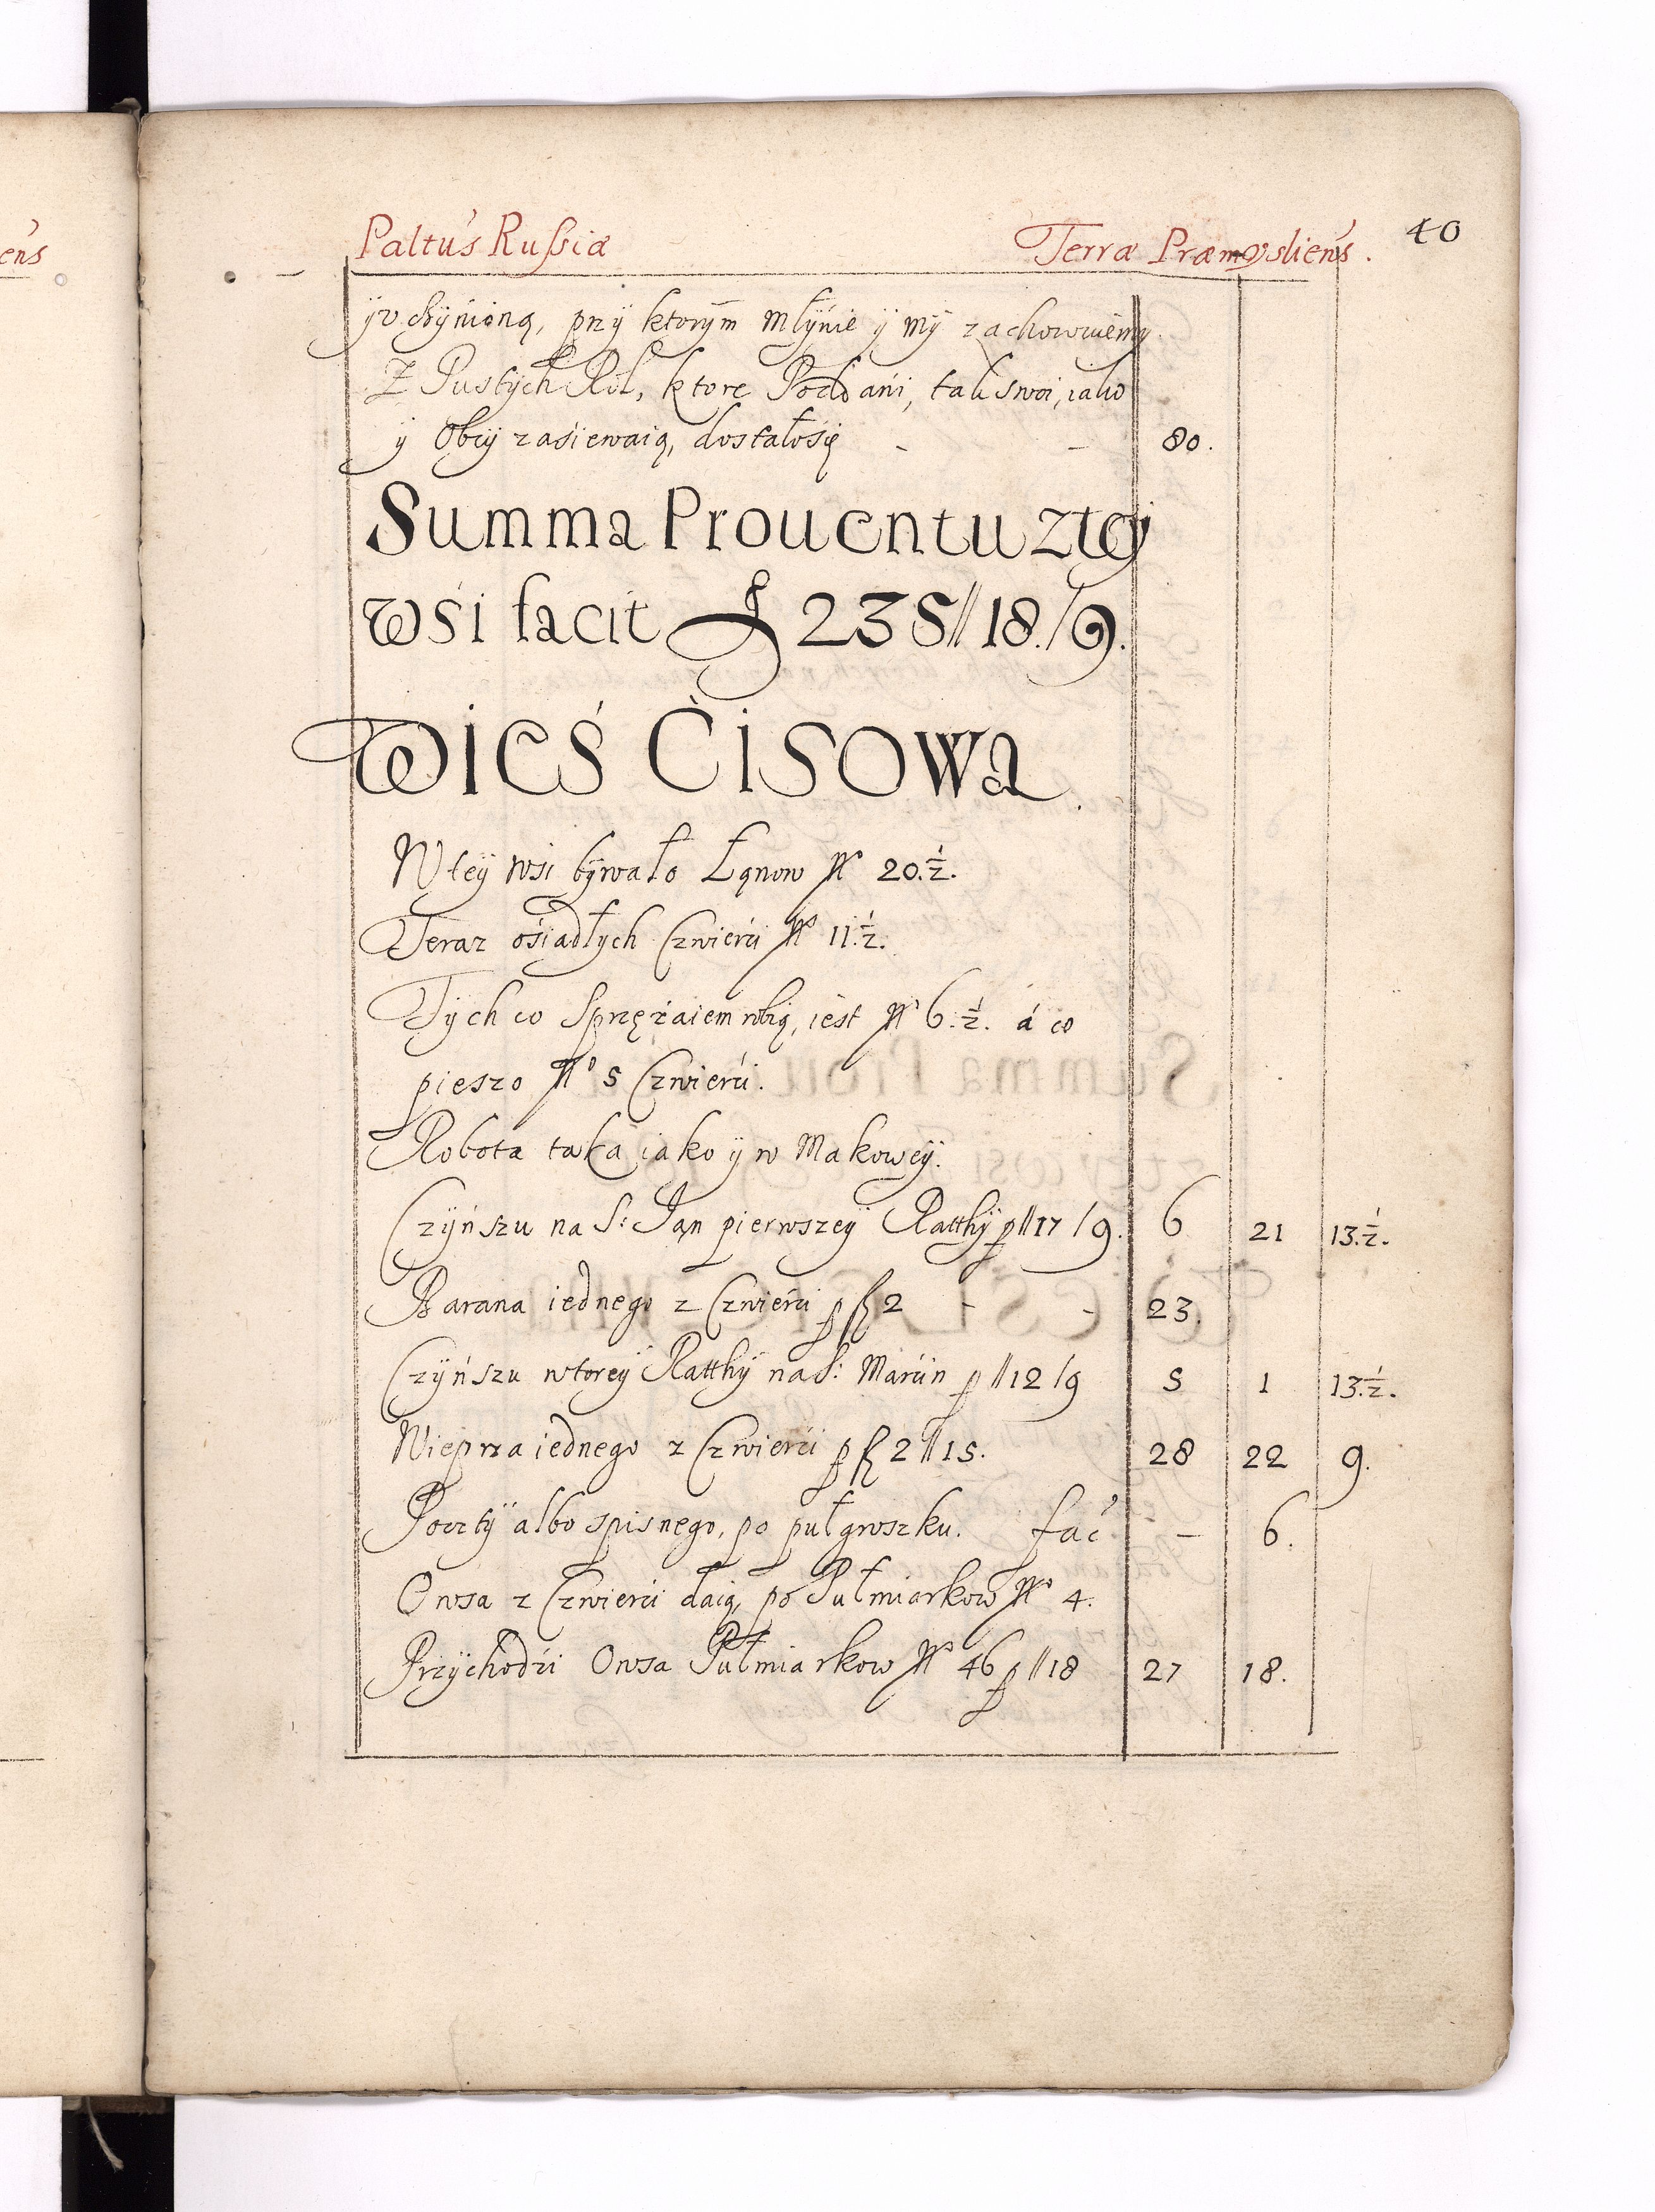 Paltus Russiæ Terræ Præmysliens. 40
y uczynioną, przy ktorym młynie y my zachowuiemy
Z Pustych Rol, ktore Poddani, tak swoi, iako
y Obcy zasiewaią, dostało się - - 80.
Summa Prouentu z tey
wsi facit fl 235 // 18. / 9.
Wieś Cisowa.
W tey wsi bywało Łanow No 20. ½.
Teraz ośiadłych Czwierci No 11. ½.
Tych co Sprzężaiem robią, iest No 6. ½. á co
pieszo No 5 Czwierci.
Robota taka iako y w Makowey.
Czynszu na S: Jan pierwszey Ratthy p // 17 / 9. 6 21 13. ½.
Barana iednego z Czwierci p fl 2 - - 23.
Czynszu wtorey Ratthy na S: Marcin p // 12 / 9 5 1 13. ½.
Wieprza iednego z Czwierci p fl 2 // 15. 28 22 9.
Poczty albo spisnego, po puł groszku. fac - 6.
Owsa z Czwierci daią, po Pułmiarkow No 4.
Przychodzi Owsa Pułmiarkow No 46 p // 18 27 18.